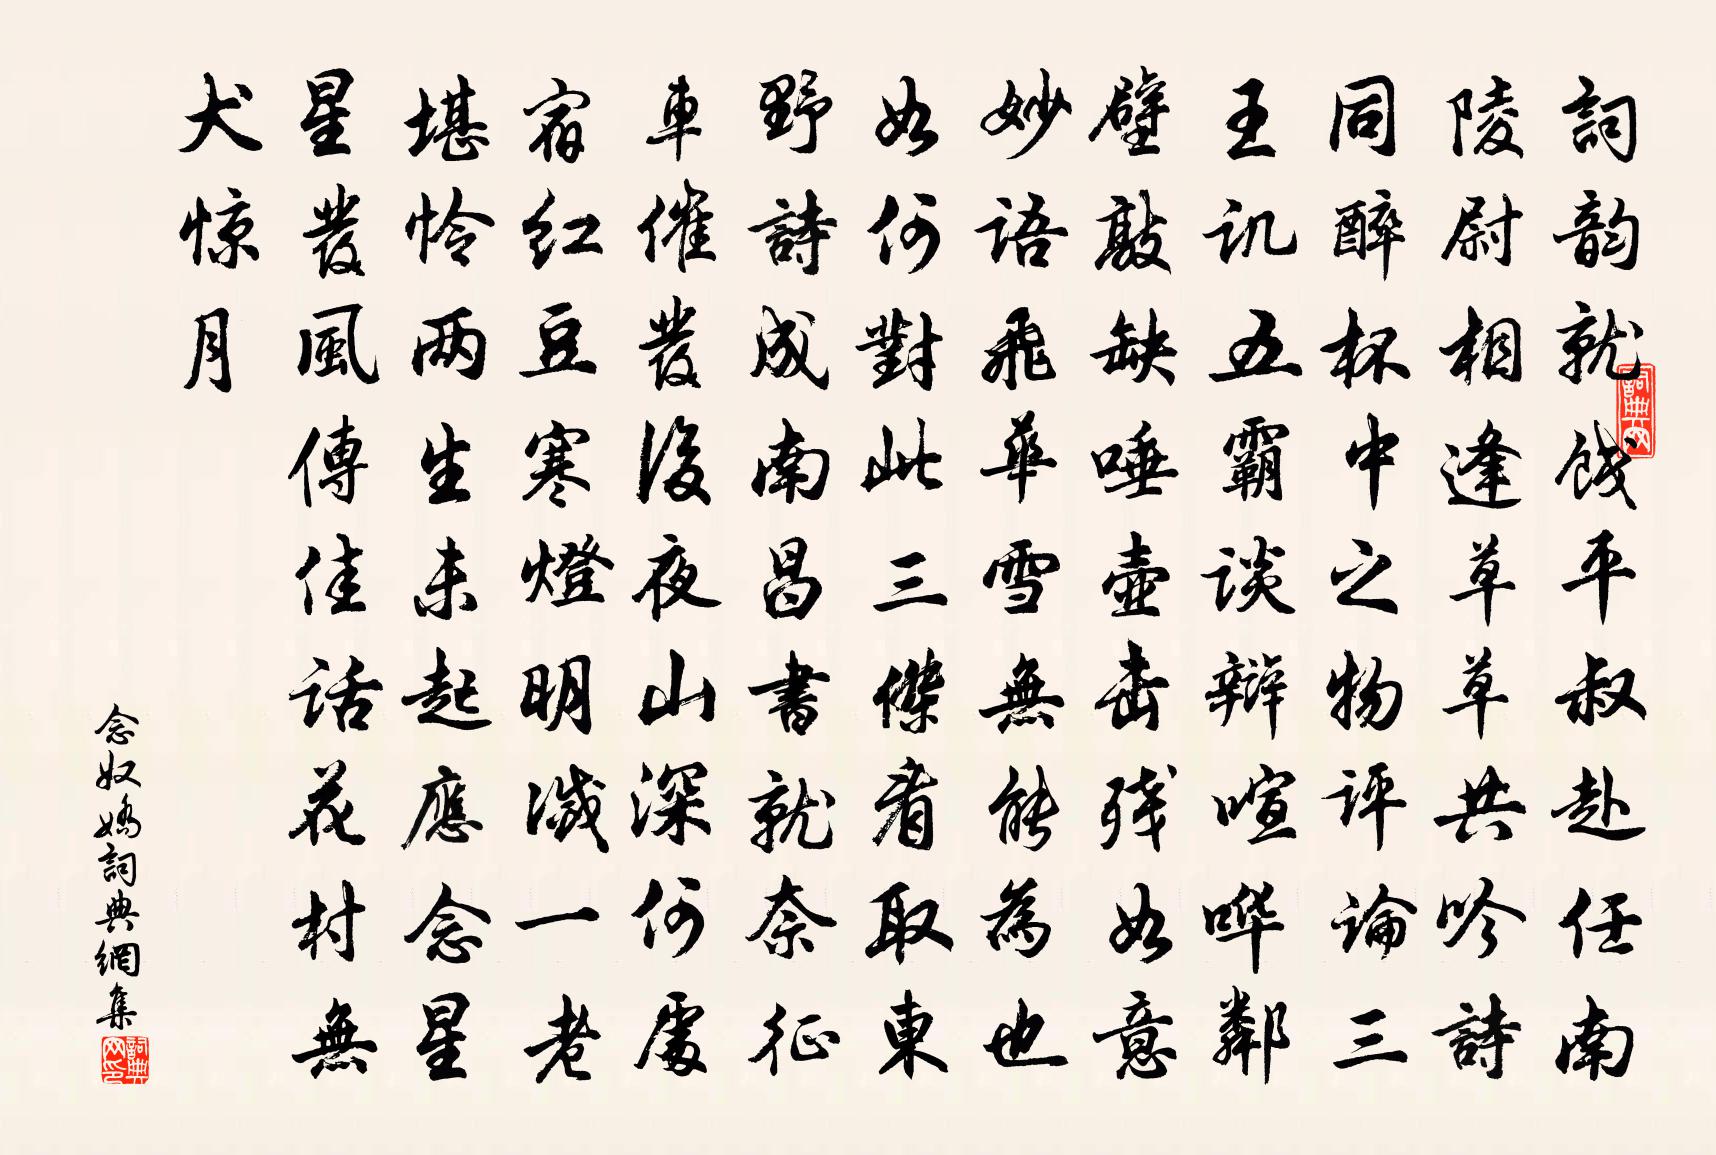 詞韵就饯平叔赴任南
陵尉相逢草草共吟詩
同醉杯中之物评論三
王讥五霸谈辩喧哗鄰
壁敲缺唾壺击残如意
妙语飛華雪無能為也
如何對此三傑看取東
野詩成南昌書就奈征
車催發後夜山深何處
宿红豆寒燈明滅一老
堪怜两生未起應念星
星發風傳佳话花村無
犬惊月
念奴嬌詞典網集
詞典网
詞典网印